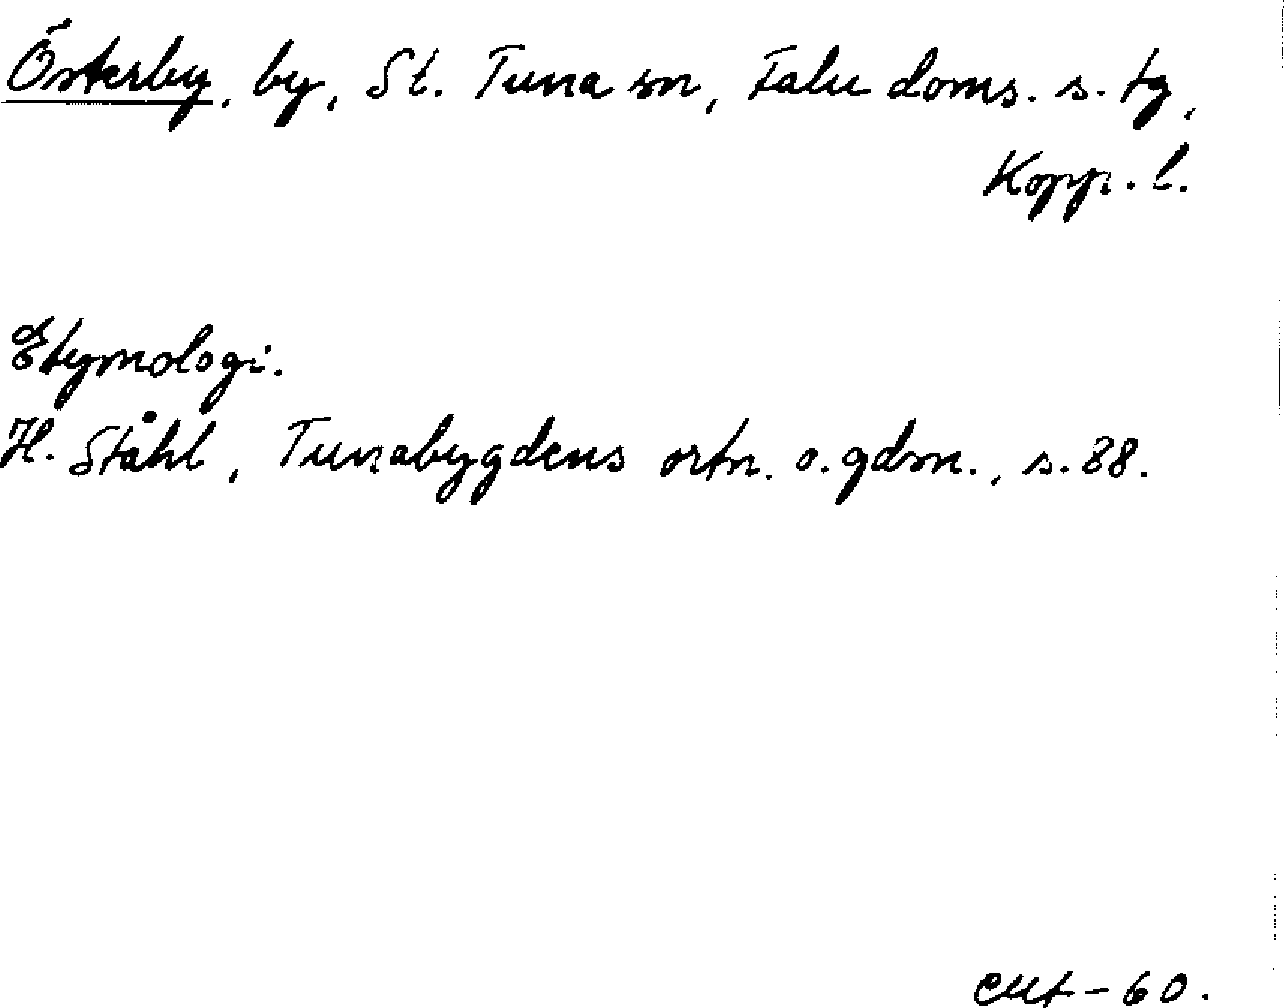 Österby, by, St. Tuna sn, Falu doms. s. tg,
Kopp. l.
Etymologi.
H. Ståhl, Tunabygdens ortn. o. gdm., s. 88.
-60.